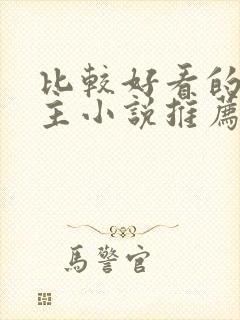 比較好看的
主小說推薦
馬警官